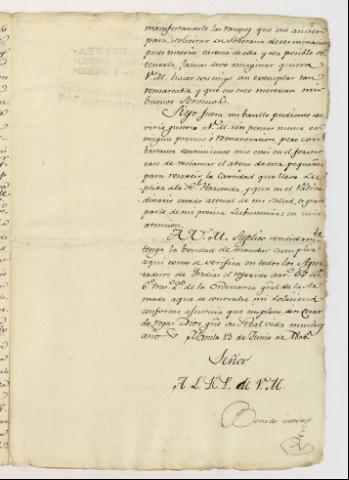 manifestandole las razones que me asisten
para solicitar su soberana determinacion
pues interin carezca de ella y sea posible ob-
tenerla, jamas devo imaginar quiera
V.M. hacer conmigo un exemplar tan
remarcable y que no creo merezcan mis
buenos Servicios.
Si yo fuera un basallo pudiente ser-
viria quisiera a V.M. sin pensar nunca en
ningun premio o remuneracion, pero con
bastante sentimiento me veo en el forzoso
caso de reclamar el abono de esta pequeñez
para resarcir la cantidad que llevo su-
plida a la Rl. Hacienda, y que en el
dinario estado actual de mi salud,
parte de mi precisa subsistencia: en cuia
atencion.
A V.M. Suplico rendidamte.
tenga la bondad de mandar se cumpla
aqui como se verifica en todos los Apos-
taderos de Indias el referido artº 67
6º trat. 2º de la Ordenanza gral. de la Ar-
mada a que se contrahe mi solicitud
conforme a justicia que imploro, sin cesar
de rogar a Dios gûe su Real vida muchos
años. Manila 13 de Junio de 1806.
Señor
A L R P. de V.M.
Benito